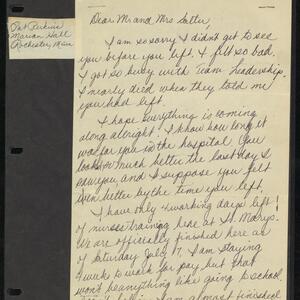 Pat Perkins
Marian Hall
Rochester, Minn
Dear Mr and Mrs Sattler,
I am so sorry I didn't get to see
you before you left. I felt so bad.
I got so busy with Team Leadership.
I nearly died when they told me
you had left.
I hope everything is coming
along allright. I know how long it
was for you in the hospital. You
looked so much better the last day I
saw you and I suppose you felt
even better by the time you left.
I have only 4 working days left
of nurses training here at St. Marys.
We are officially finished here as
of Saturday July 17. I am staying
4 weeks to work for pay but that
won't be anything like going to school